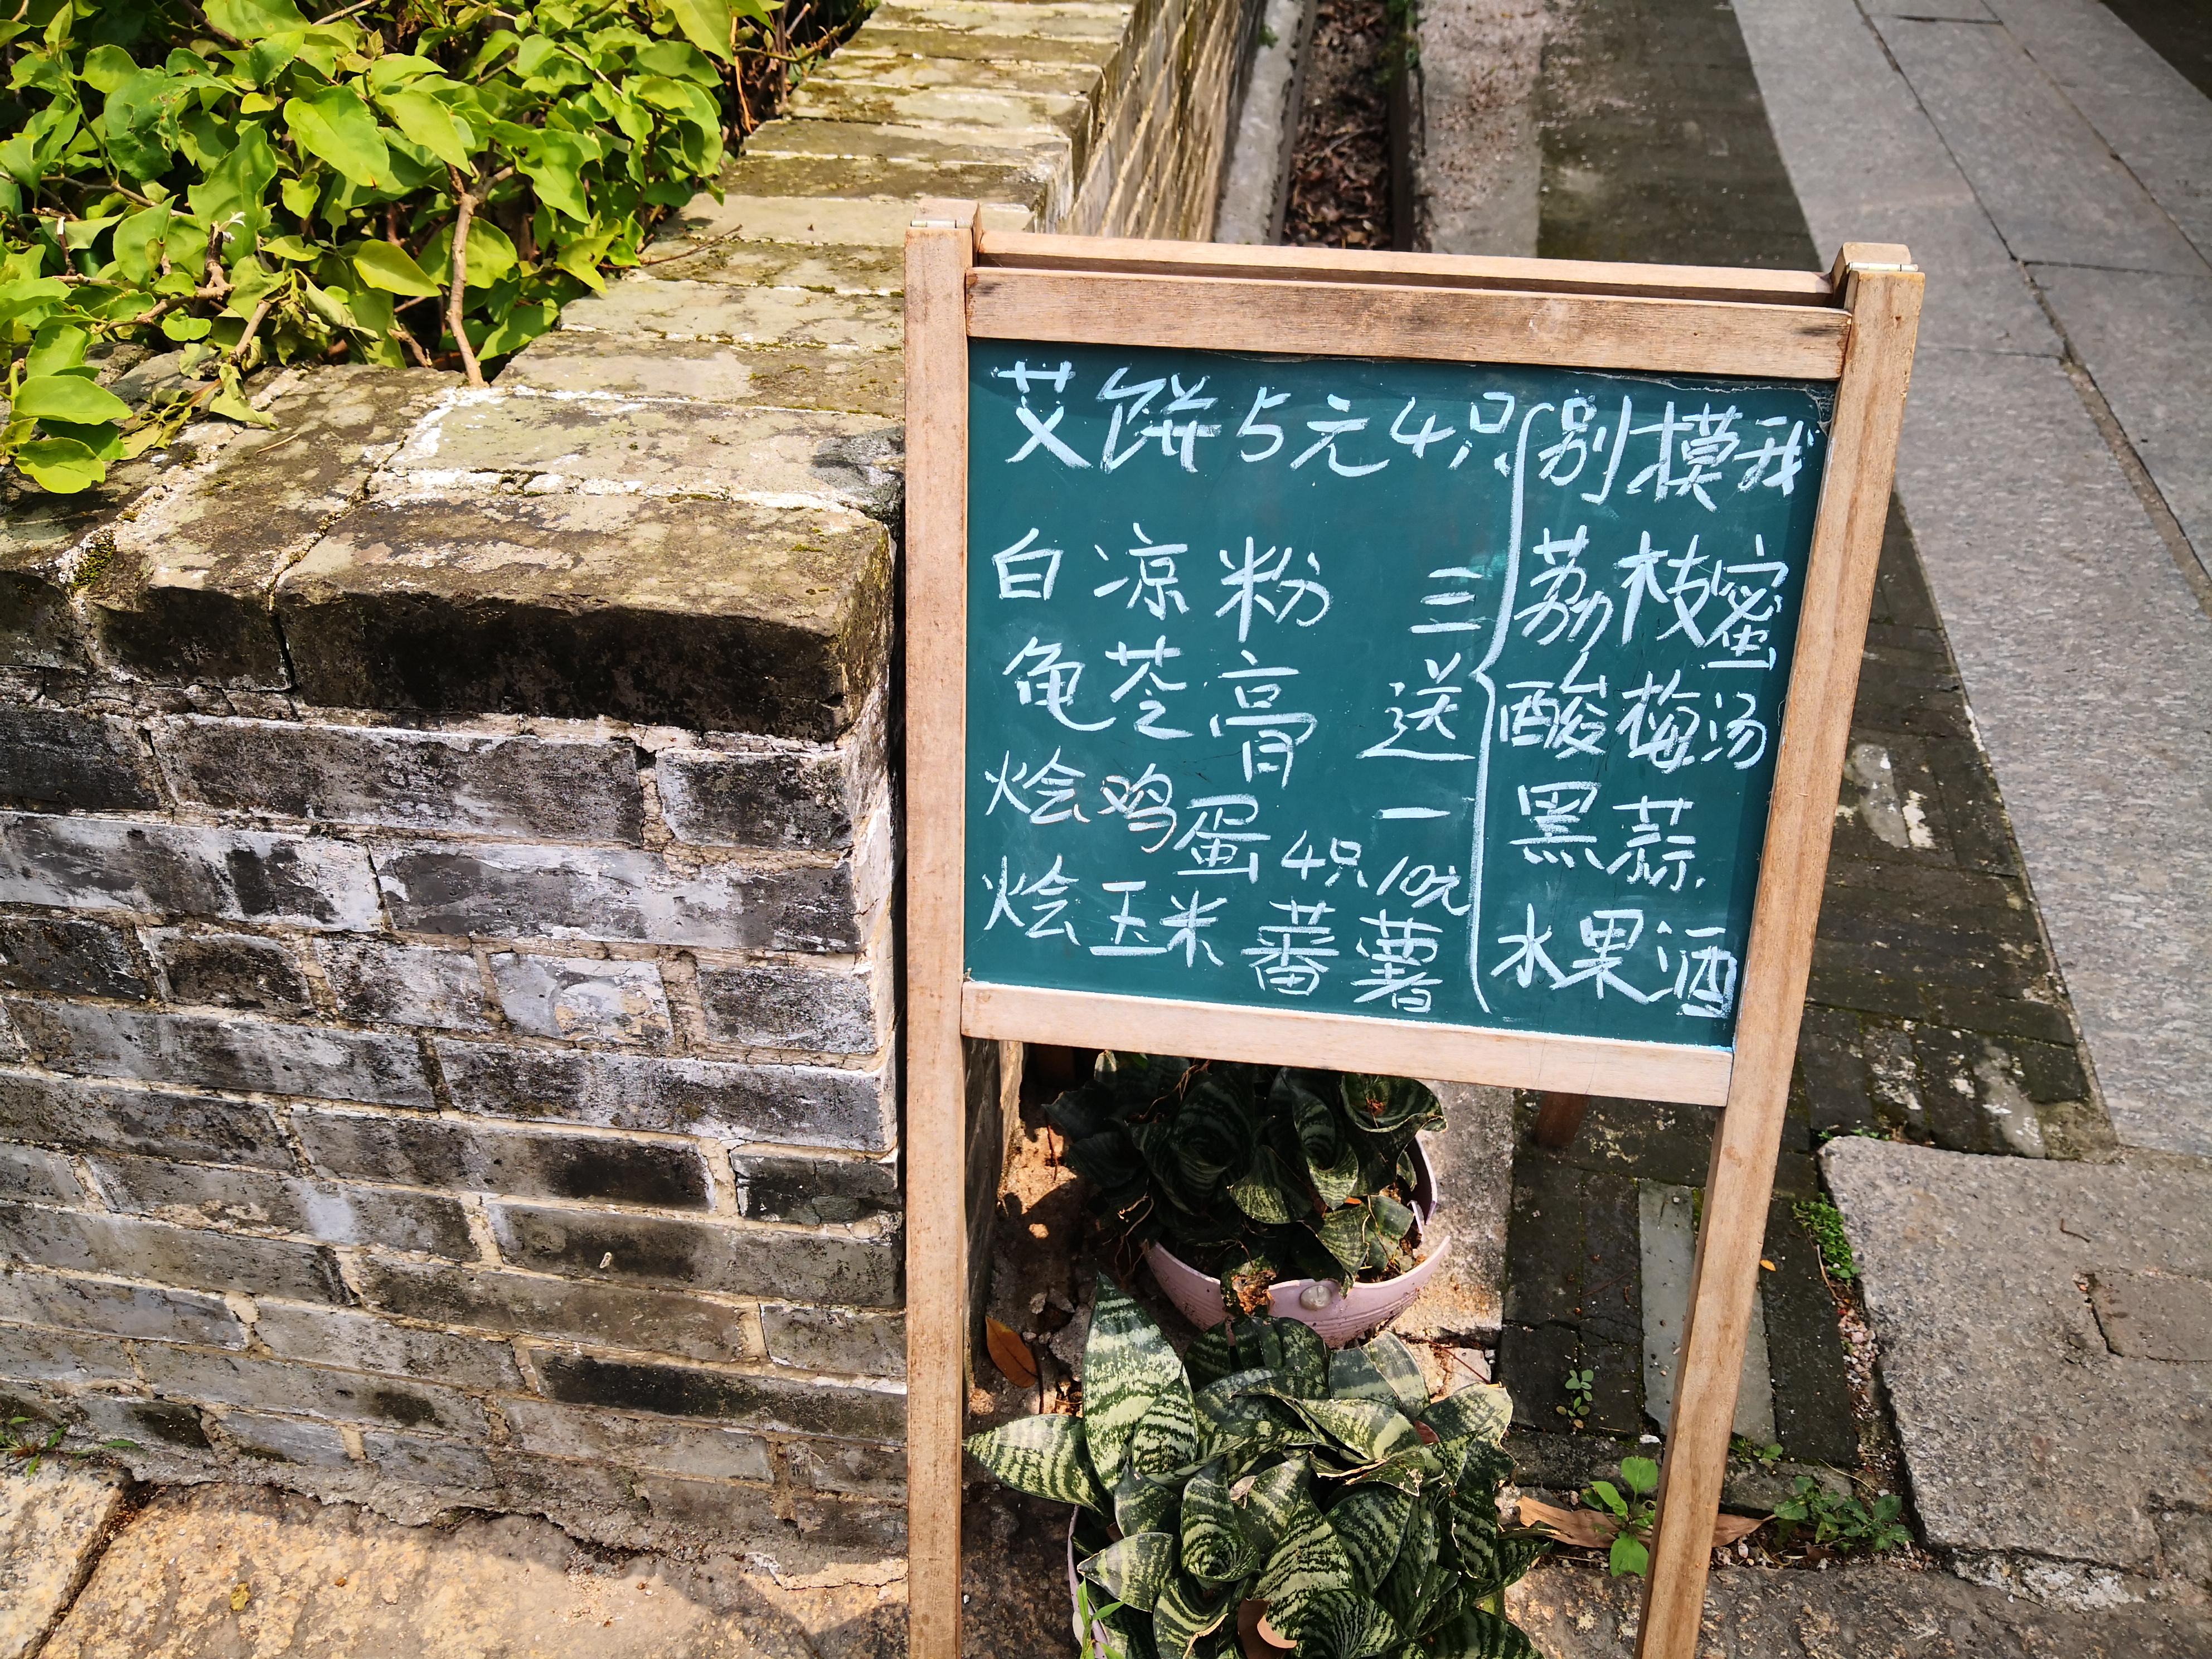 艾饼5元4只
白凉粉
龟苓膏
烩鸡蛋4只10元
烩玉米 蕃薯
三送一
别摸我
荔枝蜜
酸梅汤
黑蒜
水果酒